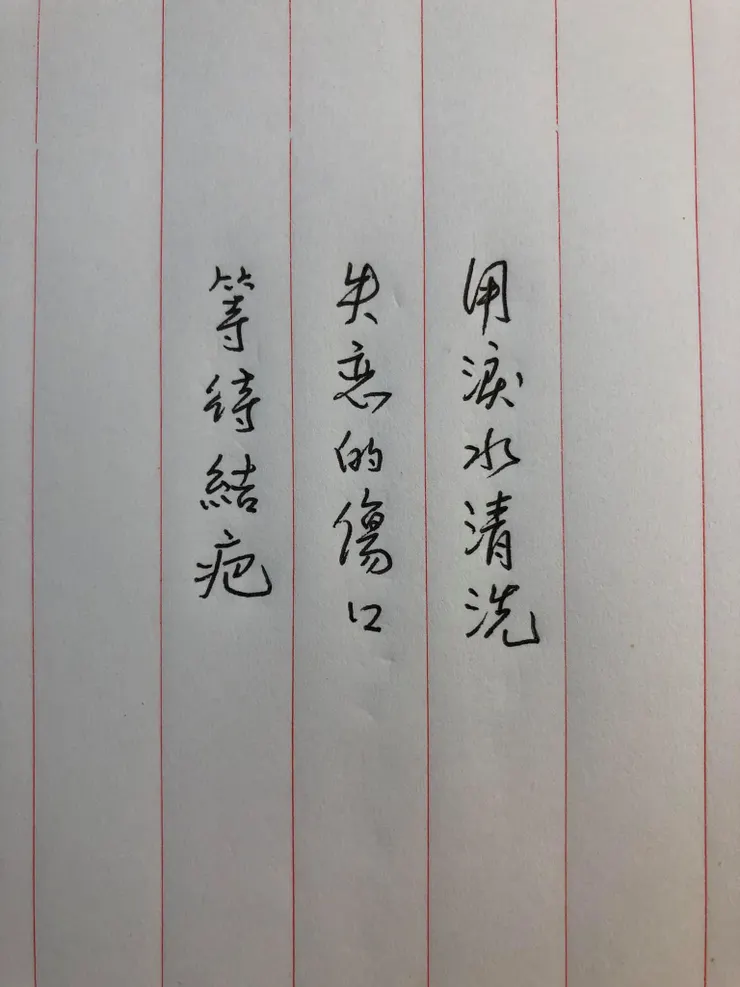 用淚水清洗
失恋的傷口
等待結疤